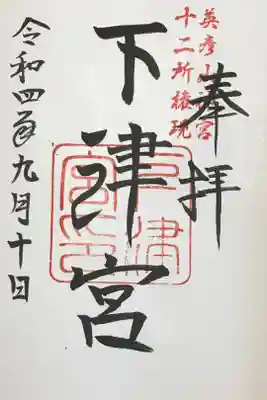 奉拝
英彦山
十二所権現
下津宮
令和四年九月十日